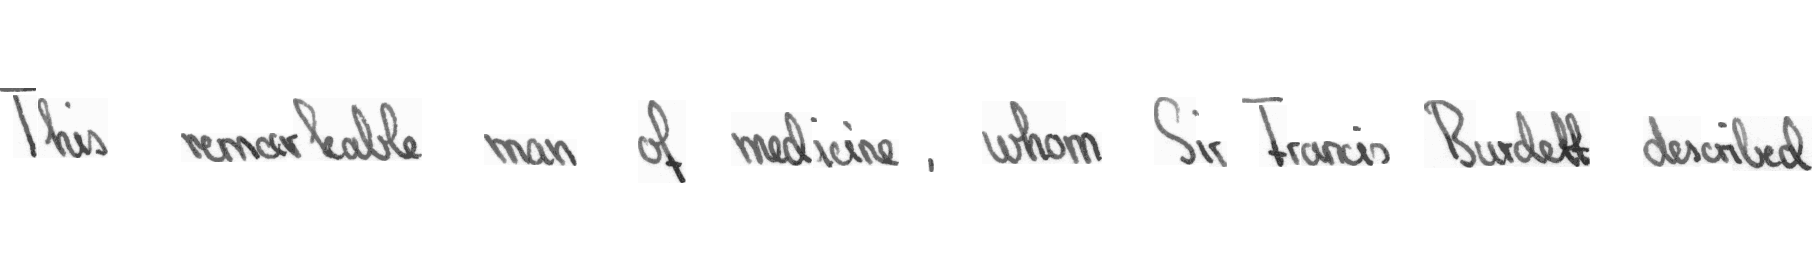 This remarkable man of medicine, whom Sir Francis Burdett described